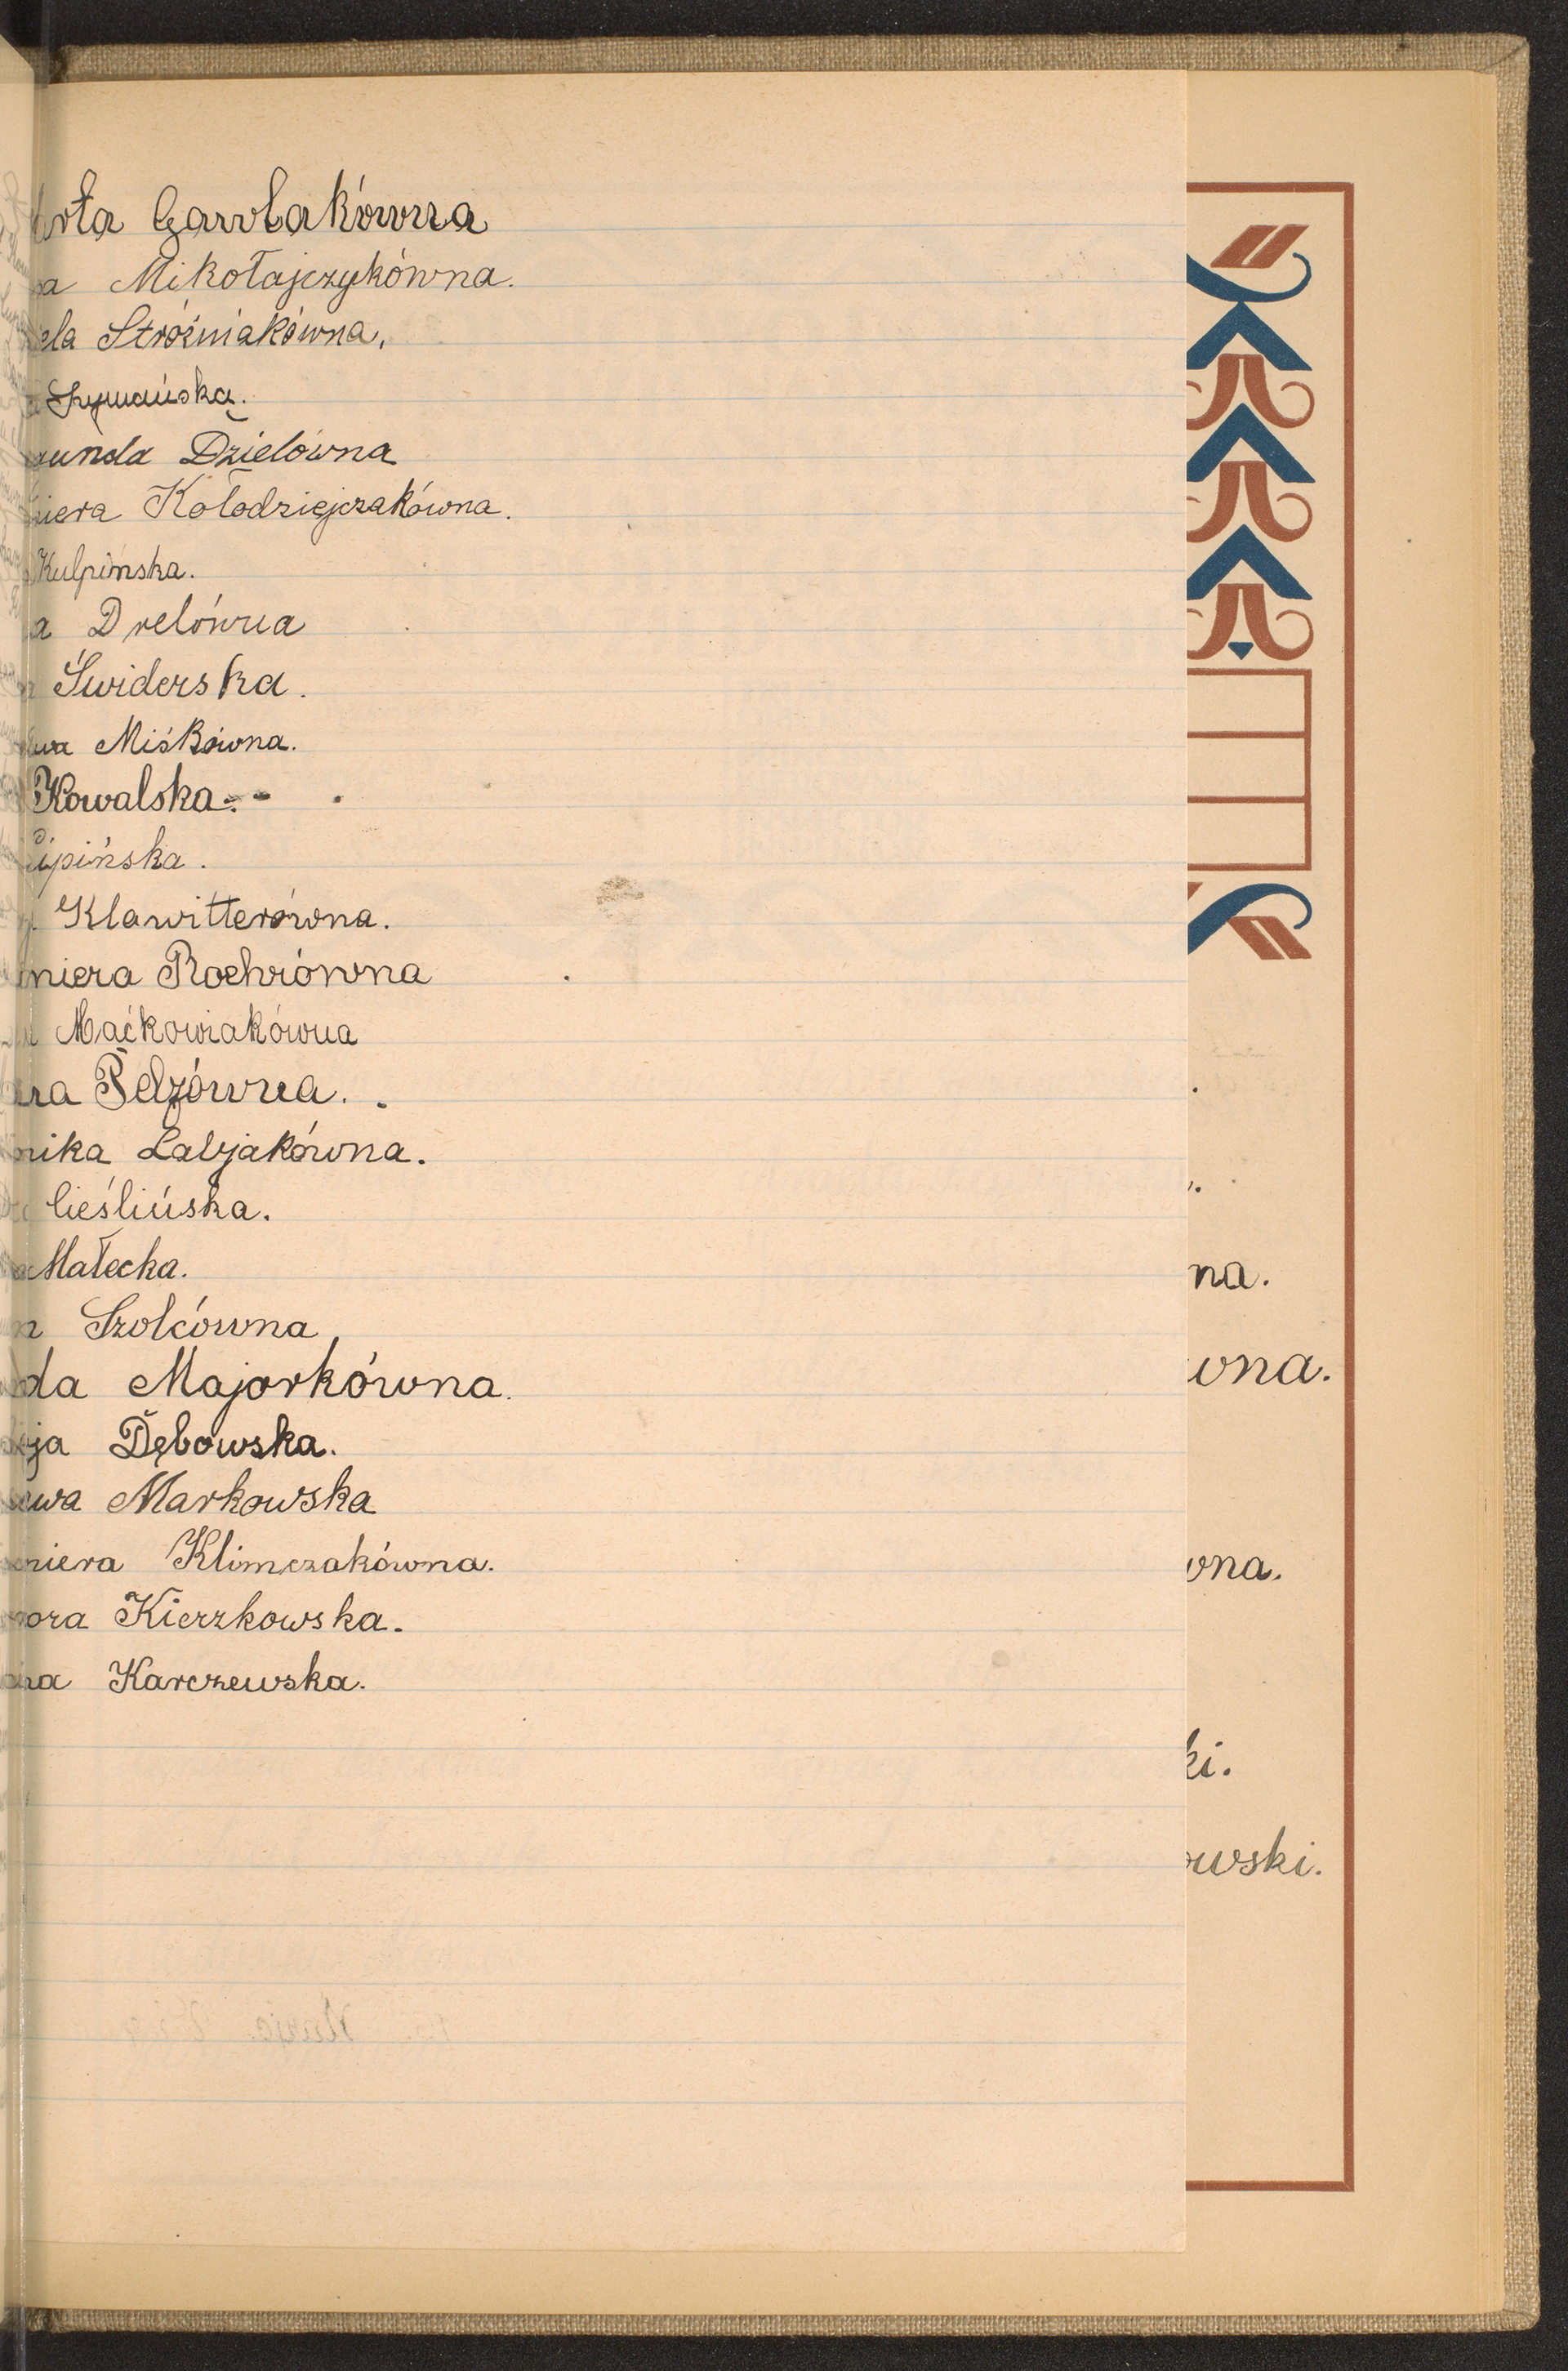 Gawlakówna
a Mikołajczykówna.
ela Stróżniakówna.
Szymańska.
gunda Dzielówna
miera Kołodziejczakówna.
Kulpińska.
a Drelówna
Świderska.
awa Miśkówna.
Kowalska.-
Lipińska.
Klawitterówna.
miera Rochrówna
Maćkowiakówna
Pelzówna.
nika Labjakówna.
Cieślińska.
a Małecka.
Szolcówna
da Majorkówna.
ja Dębowska.
awa Markowska
miera Klimczakówna.
nora Kierzkowska.
na Karczewska.
na.
wna.
wna.
ki.
owski.